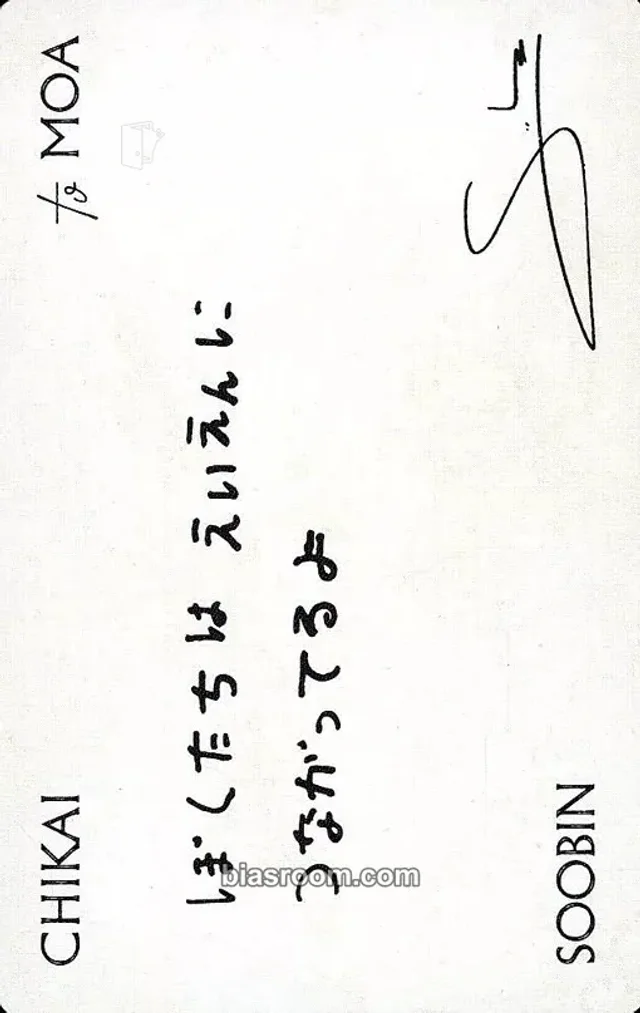 CHIKAI
to MOA
ぼくたちは えいえんに
つながってるよ
SOOBIN
biasroom.com